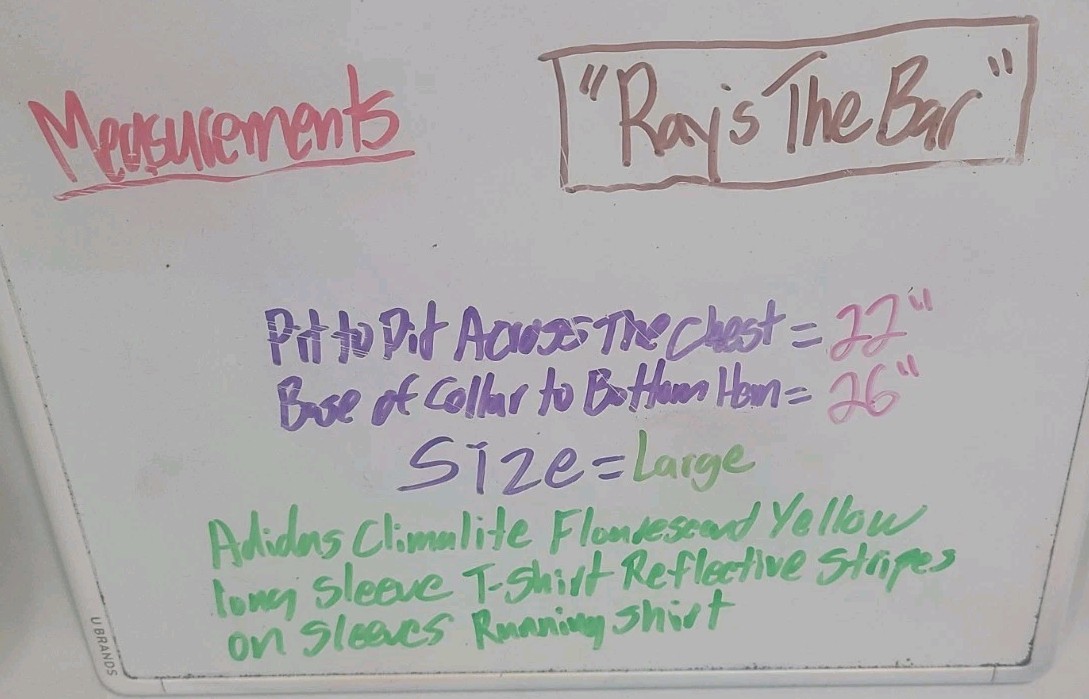 Measurements
"Ray's The Bar"
Pit to Pit Across The Chest = 22"
Base of Collar to Bottom Hem = 26"
Size = Large
Adidas Climalite Flourescend Yellow
long sleeve T-Shirt Reflective Stripes
on Sleeves Running shirt
U BRANDS